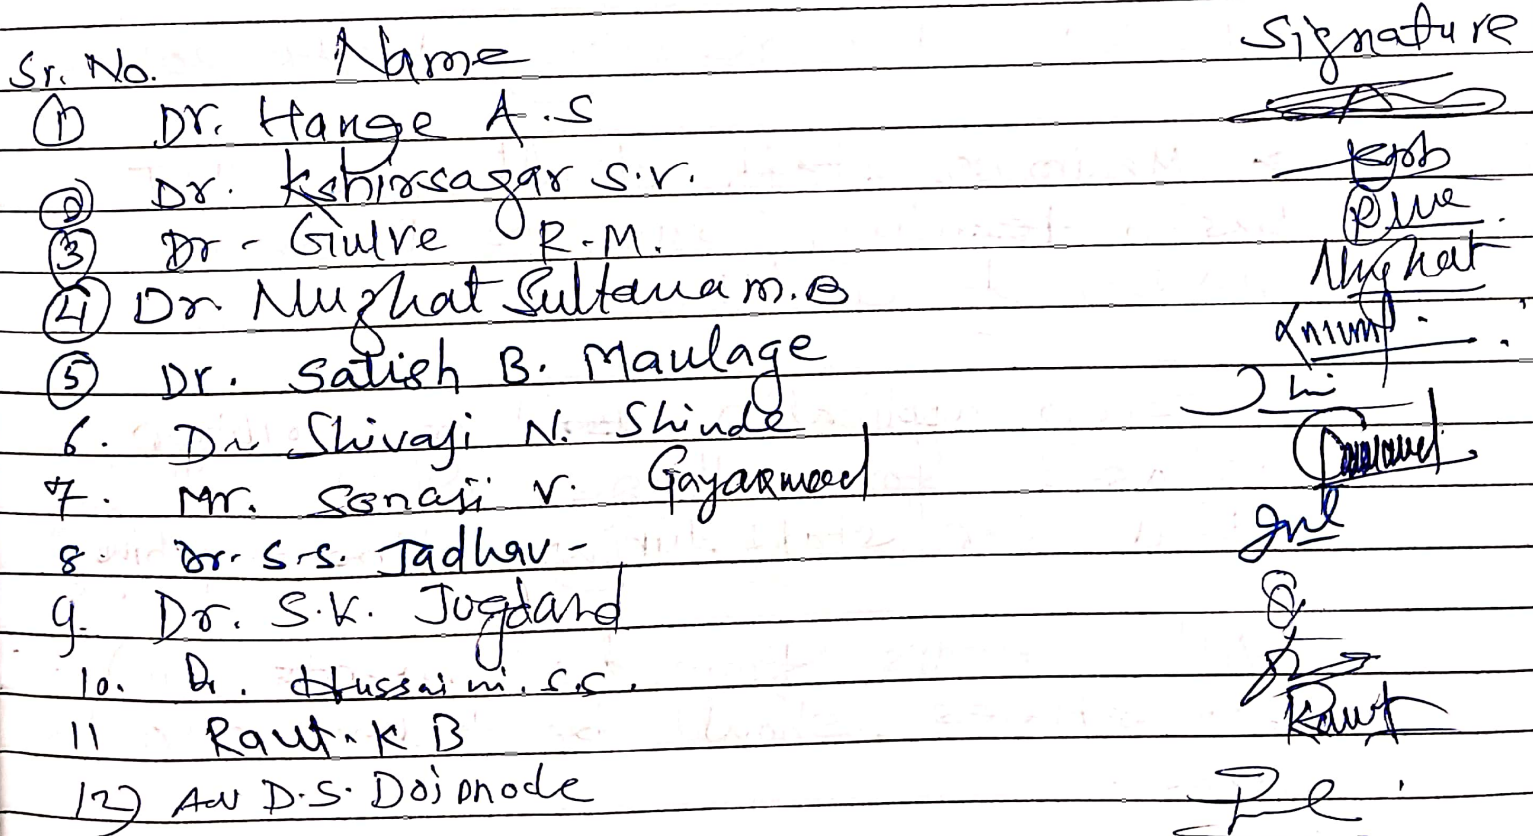 Sr. No. Name Signature
① Dr. Hange A.S
② Dr. Kshirsagar S.V.
③ Dr - Giulve R.M.
④ Dr Nuzhat Sultana m.B Nuzhat
⑤ Dr. Satish B. Maulage
6. Dr Shivaji N. Shinde
7. Mr. Sonaji V.
8. Dr. S.S. Jadhav -
9. Dr. S.K. Jogdand
10. Dr. Hussaini. S.S.
11 Raut. K B Raut
12) Adv D.S.